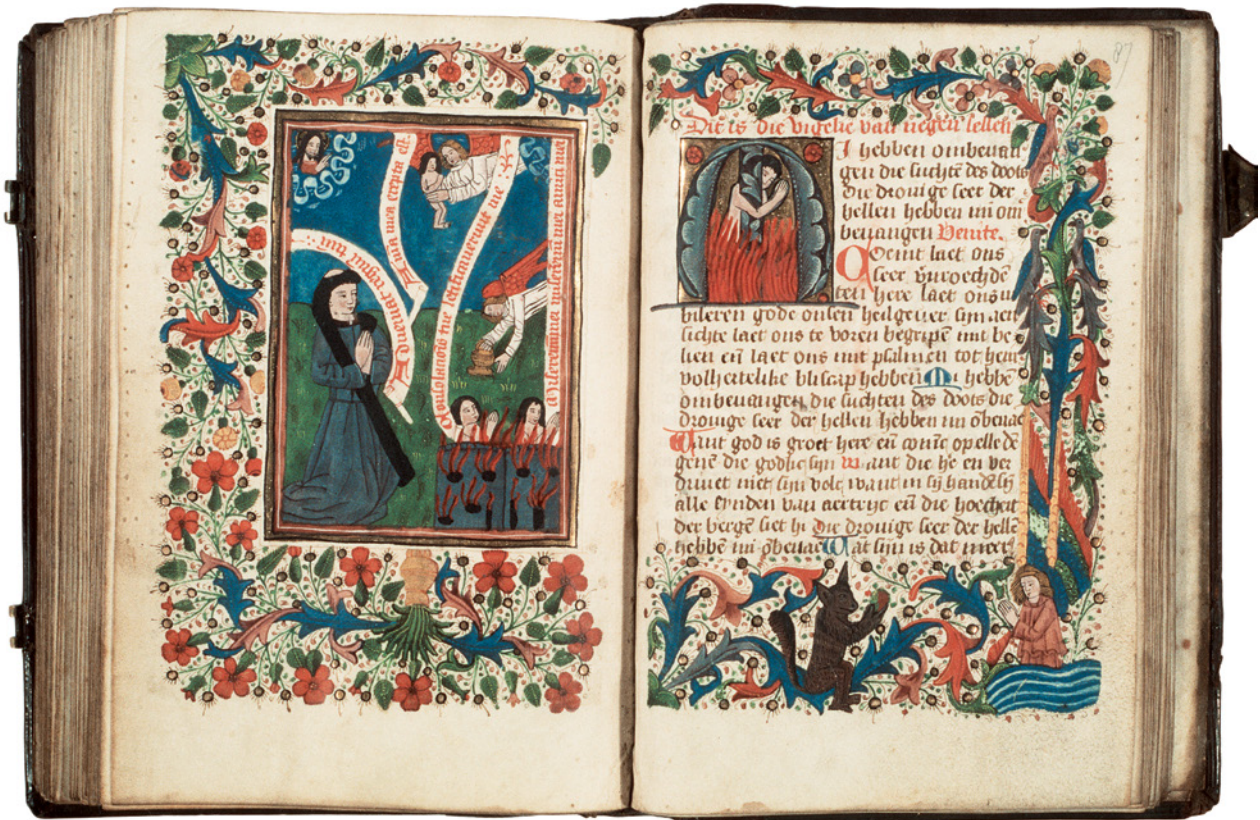 Adveniat regnum tuu
A ĩa mea erepta est
Cōsolacōis tue letificaverunt me
Miseremini mei miseremini mei amici mei
87
Dit is die vigelie van negen lessen
I hebben ombevan
gen die suchtē des doots
die drouige seer der
hellen hebben mi om
bevangen Venite.
Coemt laet ons
seer vroechdē
ten here laet ons iu
bileren gode onsen heilgever sijn aen
sichte laet ons te voren begripē mit be
lien eñ laet ons mit psalmen tot hem
volhertelike bliscap hebben Mi hebbē
ombevangen die suchten des doots die
drouige seer der hellen hebben mi ōbevaē
Want god is groet here eñ conīc op alle dē
genē die godlic sijn want die hē en ver
drivet niet sijn volc want in sij handē sij
alle eynden van aertryc eñ die hoecheit
der bergē siet hi Die drouige seer der hellē
hebbē mi ōbevaē Wāt sijn is dat meer